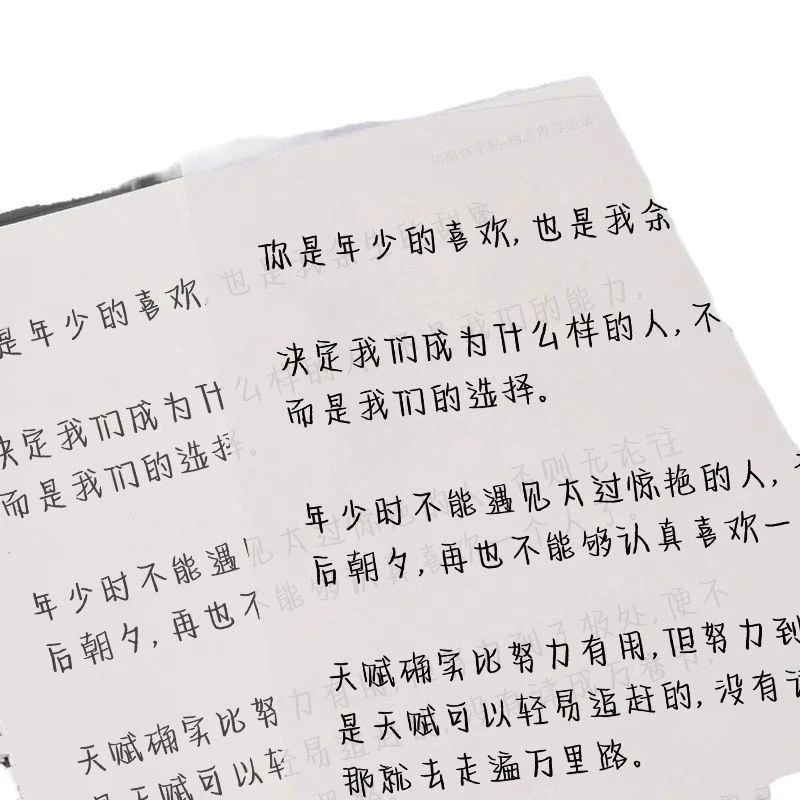 奶酪体字帖-励志青春语录
你是年少的喜欢,也是我余
决定我们成为什么样的人,不
而是我们的选择。
年少时不能遇见太过惊艳的人,
后朝夕,再也不能够认真喜欢一
天赋确实比努力有用,但努力到
是天赋可以轻易追赶的,没有
那就去走遍万里路。
是年少的喜欢,也是我
决定我们成为什么样的
而是我们的选择。
年少时不能遇见太过
后朝夕,再也不能够
天赋确实比努力有用
是天赋可以轻易